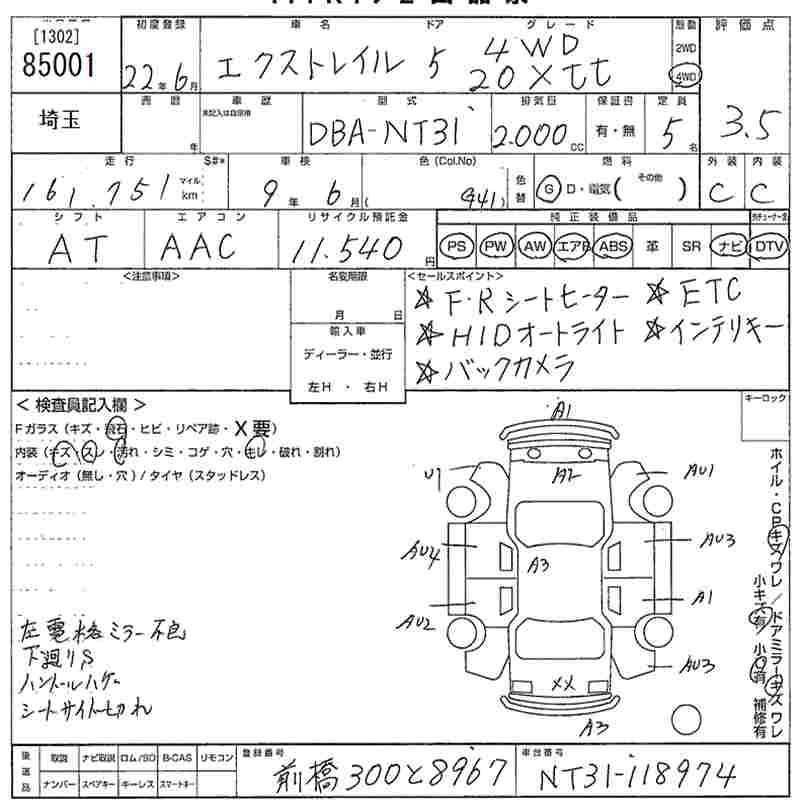 [1302]
85001
初度登録 車名 ドア グレード 駆動 評価点
22年6月 エクストレイル 5 4WD 20Xtt 2WD 4WD
3.5
埼玉
商歴 車歴 型式 排気量 保証書 定員
未記入は自家用
年 DBA-NT31 2.000cc 有・無 5名
走行 S#* 車検 色(Col.No) 燃料 外装 内装
161,751 マイル km 9年6月( G41) 色替 G D・電気( その他 ) C C
シフト エアコン リサイクル預託金 純正装備品
AT AAC 11.540円 PS PW AW エアB ABS 革 SR ナビ DTV
<注意事項> 名変期限 <セールスポイント>
月 日
☆F・Rシートヒーター ☆ETC
輸入車
☆HIDオートライト ☆インテリキー
ディーラー・並行
☆バックカメラ
左H・右H
<検査員記入欄> キーロック
Fガラス(キズ・飛石・ヒビ・リペア跡・X要)
内装(キズ・スレ・汚れ・シミ・コゲ・穴・キレ・破れ・割れ)
オーディオ(無し・穴)/タイヤ(スタッドレス)
A1
A2
U1 AU1
AU4 A3 AU3
AU2 A1
AU3
XX
A3
ホイル・CPキズワレ/ドアミラーキズワレ
小キズ有/小凹有 補修有
左電格ミラー不良
下廻りS
ハンドルハゲ
シートサイド切れ
後送品 取説 ナビ取説 ロム/SD B-CAS リモコン 登録番号 車台番号
ナンバー スペアキー キーレス スマートキー 前橋300と8967 NT31-118974